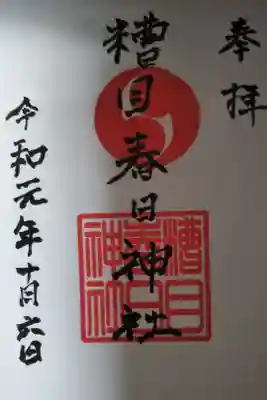 奉拝
糟目春日神社
令和元年十月六日
糟目
春日
神社